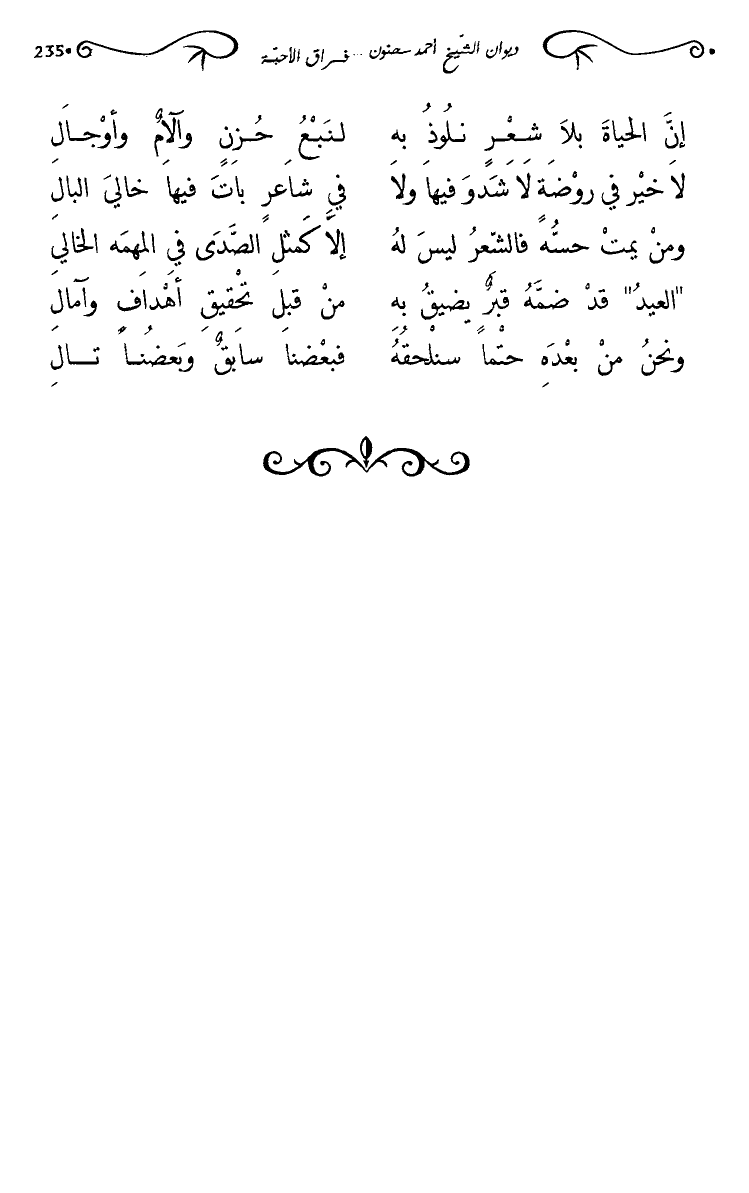 ديوان الشّيخ أحمد سحنون ... فراق الأحبّة 235
إنَّ الحياةَ بلاَ شِعْرٍ نلُوذُ بهِ لنَبْعُ حُزنٍ وآلامٌ وأوْجالِ
لاَ خيْر في روْضَةٍ لاَ شَدوَ فيهاَ ولاَ في شاعرٍ باتَ فيهاَ خاليَ البالِ
ومنْ يمتْ حسُّهُ فالشّعرُ ليسَ لهُ إلاَّ كَمثلِ الصَّدَى فيِ المهمَه الخاليِ
"العيدُ" قدْ ضمَّهُ قبرٌ يضيقُ بهِ منْ قبلِ تحْقيقِ أهْدافٍ وآمالِ
ونحنُ منْ بعْدَهِ حتْماً سنلْحقهُ فبعْضناَ سابقٌ وبَعضُناَ تالِ